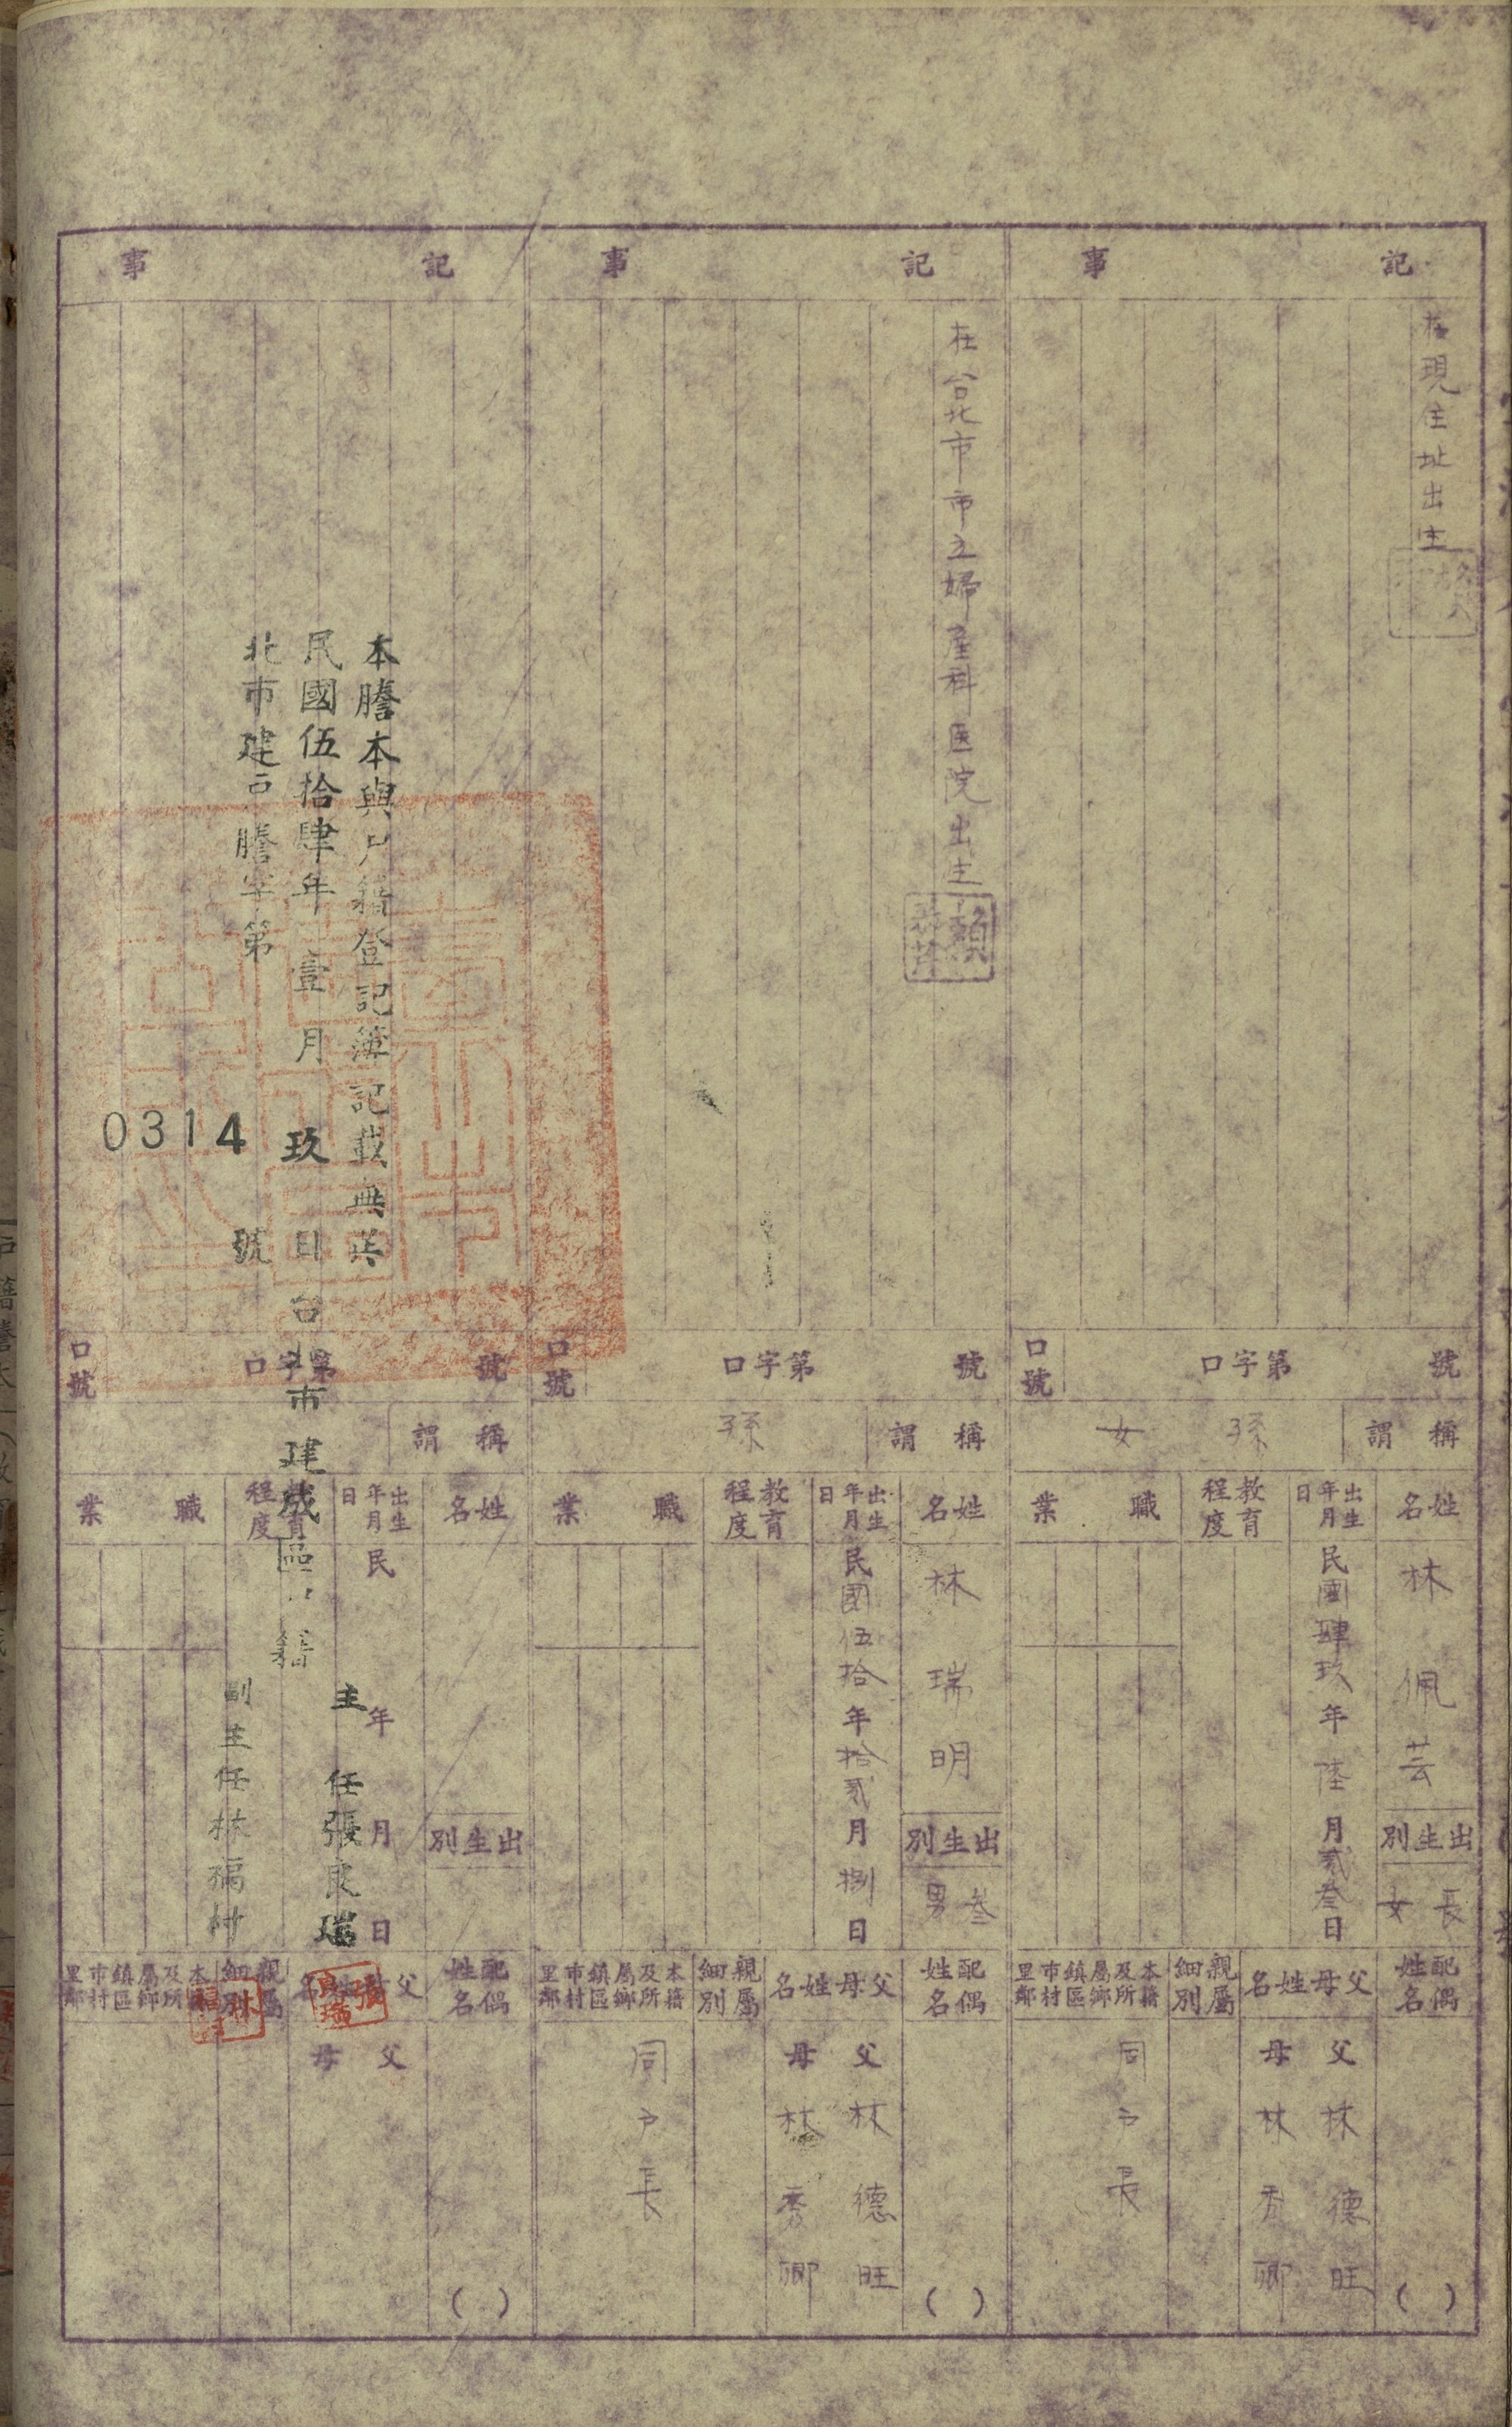 記事
在現住址出生
號 第字口 口號
稱謂 孫女
姓名 林佩芸
出生別 長女
出生年月日 民國肆玖年陸月貳叁日
教育程度
職業
配偶姓名 ( )
父母姓名
父 林德旺
母 林秀卿
親屬細別
本籍及所屬鄉鎮區市村里鄰
同戶長
記事
在台北市市立婦產科医院出生
賴
號 第字口 口號
稱謂 孫
姓名 林瑞明
出生別 叁男
出生年月日 民國伍拾年拾貳月捌日
教育程度
職業
配偶姓名 ( )
父母姓名
父 林德旺
母 林秀卿
親屬細別
本籍及所屬鄉鎮區市村里鄰
同戶長
記事
號 第字口 口號
稱謂
姓名
出生別
出生年月日 民 年 月 日
程度
職業
配偶姓名 ( )
父母
父
母
親屬細別
本 及所屬鄉鎮區市村里鄰
本謄本與戶籍登記簿記載無異
民國伍拾肆年壹月玖日台北市建成區戶籍
主任張良瑞
副主任林福
北市建戶謄字第 號
0314
張良瑞
林福